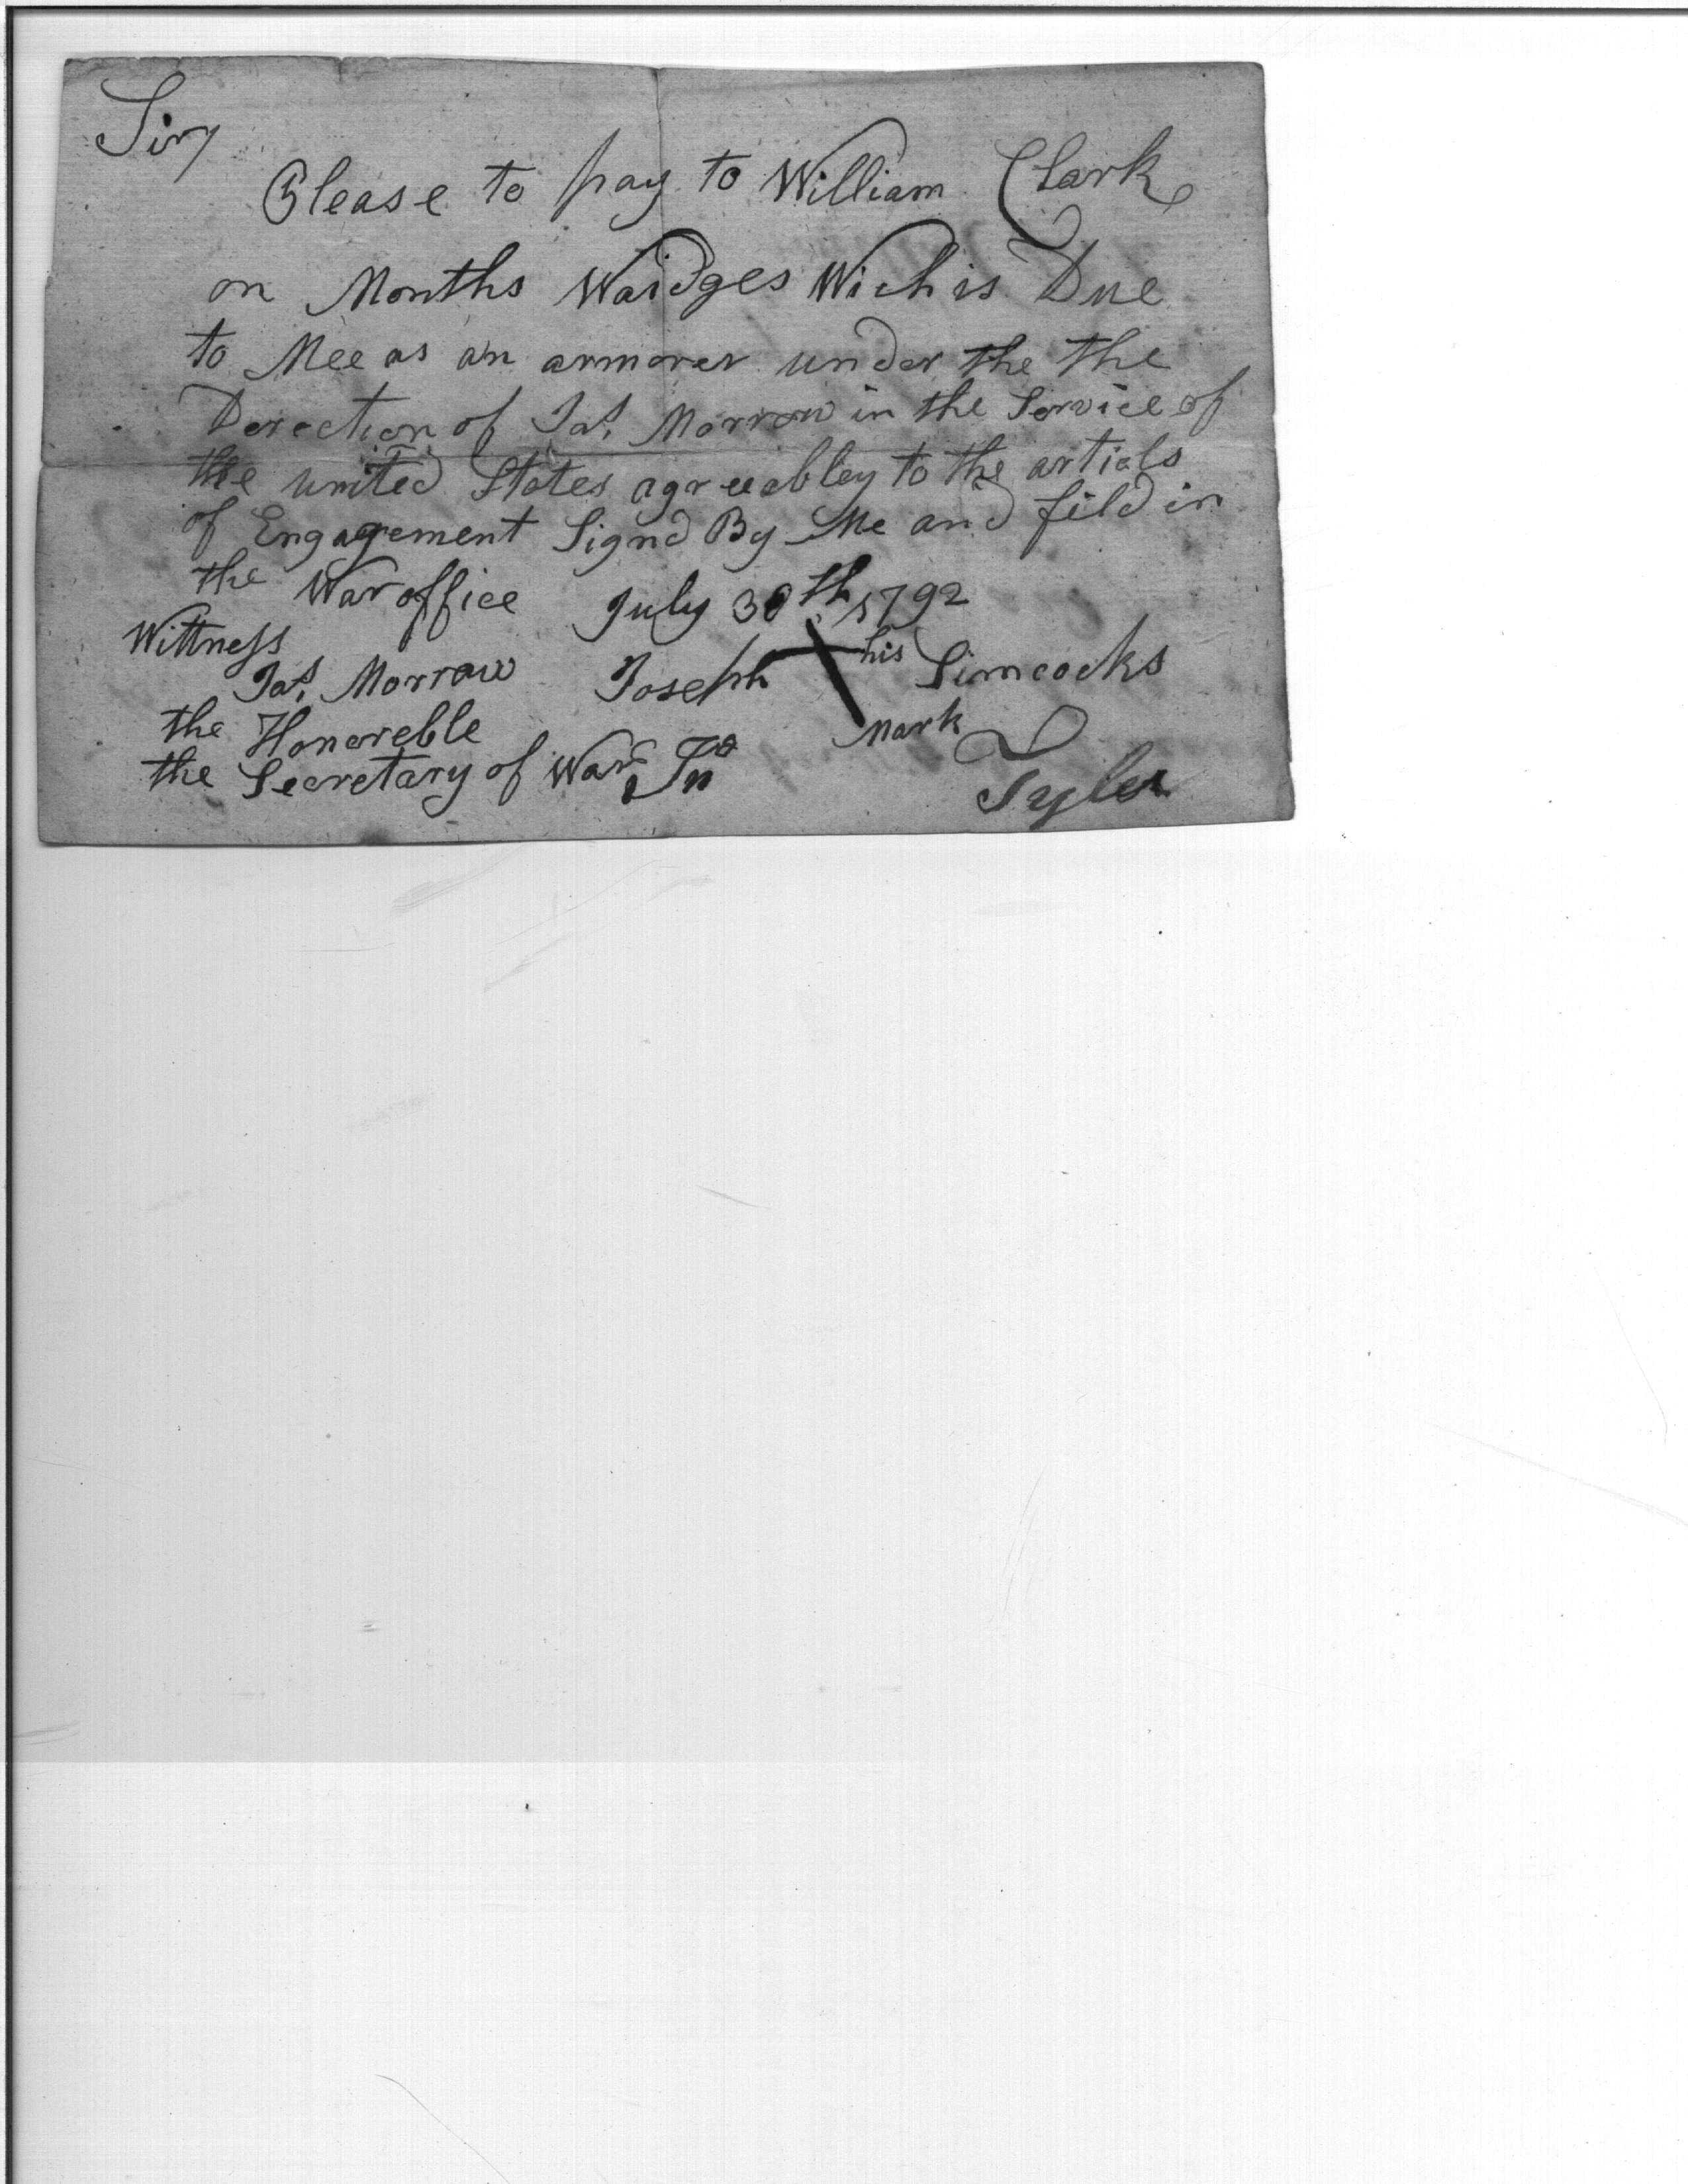 Sir
Please to pay to William Clark
on Months Waidges Wich is Due
to Mee as an armorer under the the
Derection of Jas. Morrow in the Service of
the united States agreeabley to the articls
of Engagement Signd By Me and fild in
the War office July 30th 1792
Wittness
Jas. Morrow Joseph his Simcocks
mark
the Honoreble
the Secretary of War Jno Tyler